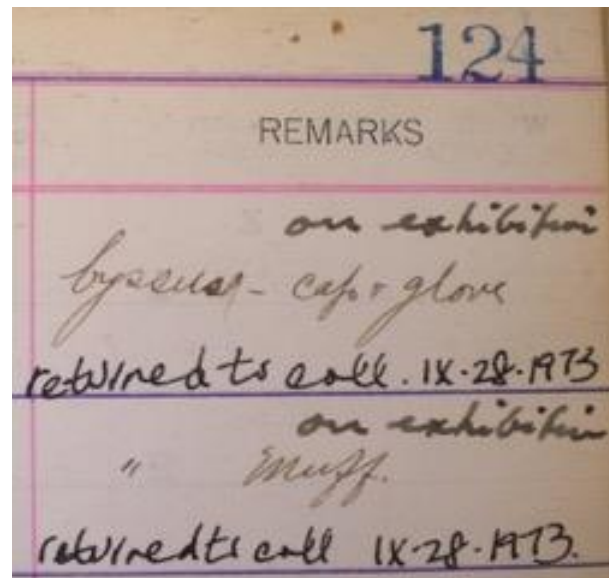 124
REMARKS
on exhibition
byssus - cap + glove
returned to coll. IX-28-1973
on exhibition
" muff.
returned to coll IX-28-1973.